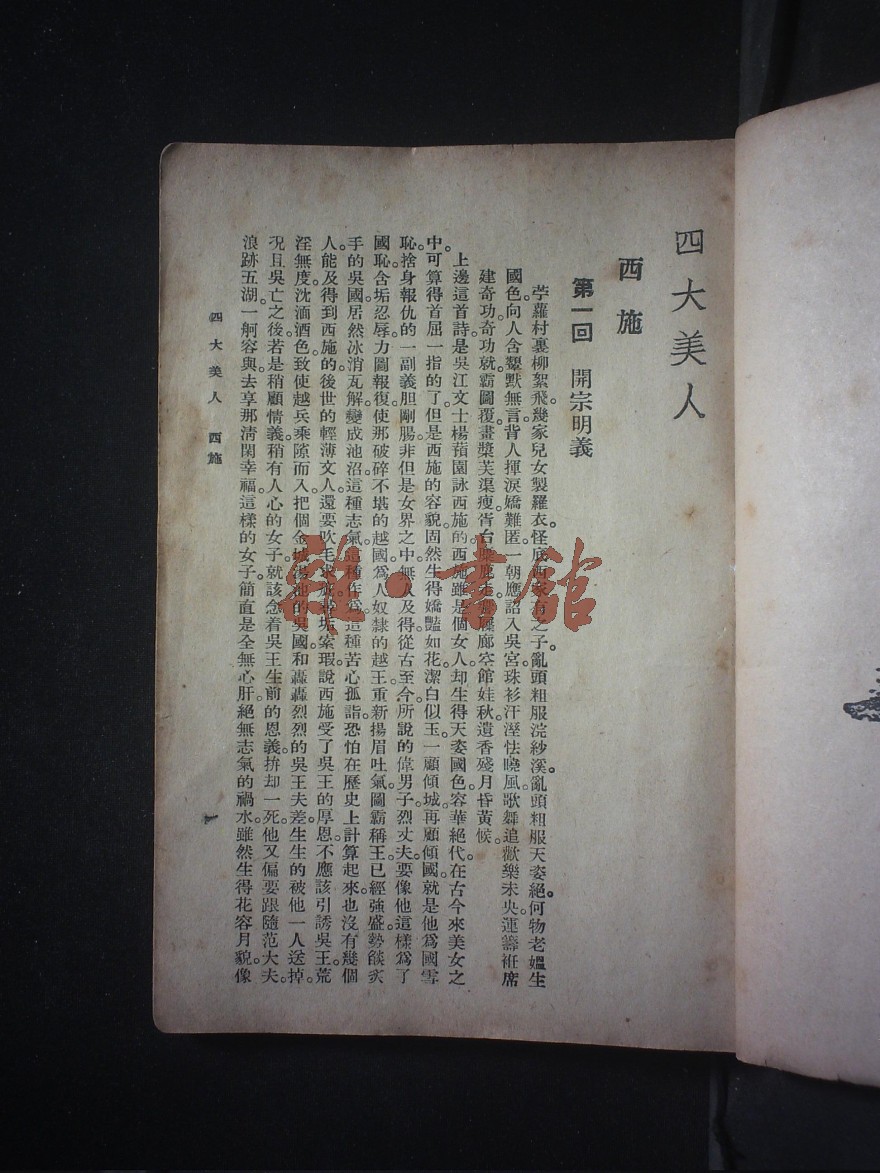 四大美人
西施
第一回 開宗明義
苧蘿村裏柳絮飛。幾家兒女製羅衣。怪底西家有之子。亂頭粗服浣紗溪。亂頭粗服天姿絕。何物老媼生
國色。向人含顰默無言。背人揮淚嬌難匿。一朝應詔入吳宮。珠衫汗溼怯曉風。歌舞追歡樂未央。運籌袵席
建奇功。奇功就。霸圖覆。畫槳芙渠瘦。胥台麋鹿走。屧廊空。館娃秋。遺香殘月昏黃候。
上邊這首詩。是吳江文士楊蘋園詠西施的。西施雖是個女人。却生得天姿國色。容華絕代。在古今來美女之
中。可算得首屈一指的了。但是西施的容貌。固然生得嬌豔如花。潔白似玉。一顧傾城。再顧傾國。就是他爲國雪
恥。捨身報仇的一副義胆剛腸。非但是女界之中。無人及得。從古至今。所說的偉男子。烈丈夫。要像他這樣爲了
國恥。含垢忍辱。力圖報復。使那破碎不堪的越國。爲人奴隸的越王。重新揚眉吐氣。圖霸稱王。已經強盛。勢燄炙
手的吳國。居然冰消瓦解。變成池沼。這種志氣。這種作爲。這種苦心孤詣。恐怕在歷史上計算起來。也沒有幾個
人。能及得到西施的。後世的輕薄文人。還要吹毛求疵。尋垢索瑕。說西施受了吳王的厚恩。不應該引誘吳王。荒
淫無度。沈湎酒色。致使越兵乘隙而入。把個金城湯池的吳國。和轟轟烈烈的吳王夫差。生生的被他一人送掉。
況且吳亡之後。若是稍顧情義。稍有人心的女子。就該念着吳王生前的恩義。拚却一死。他又偏要跟隨范大夫。
浪跡五湖。一舸容與。去享那清閑幸福。這樣的女子。簡直是全無心肝。絕無志氣的禍水。雖然生得花容月貌。像
四大美人 西施
一
雜·書館